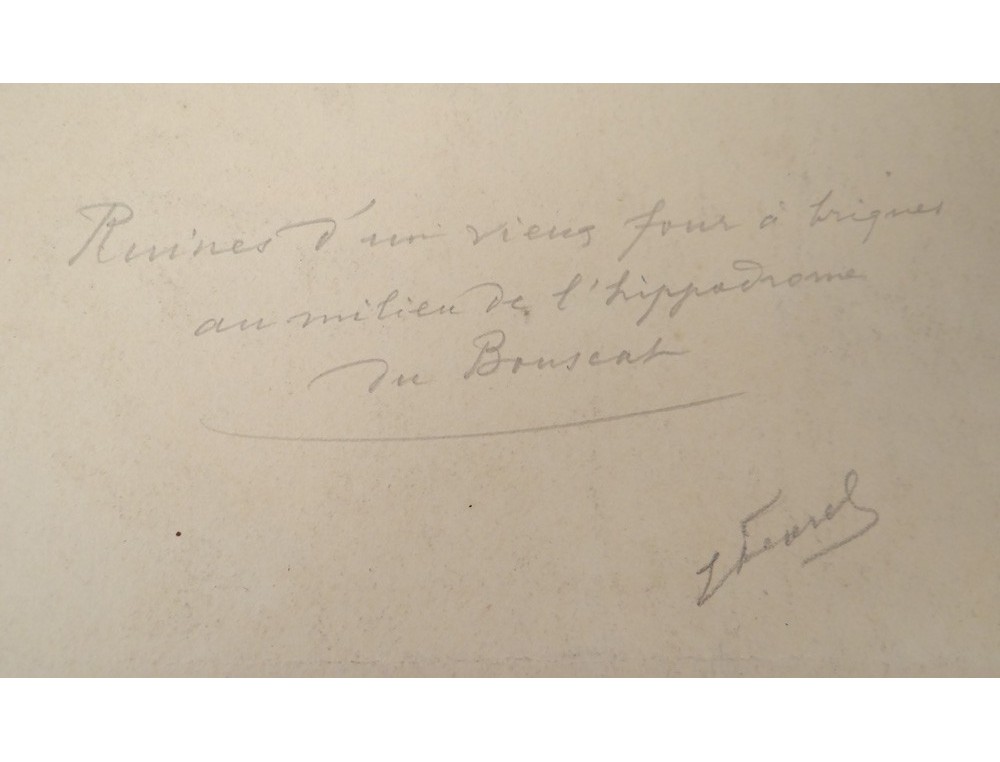 Ruines d'un vieux four à briques
au milieu de l'hippodrome
du Bouscat